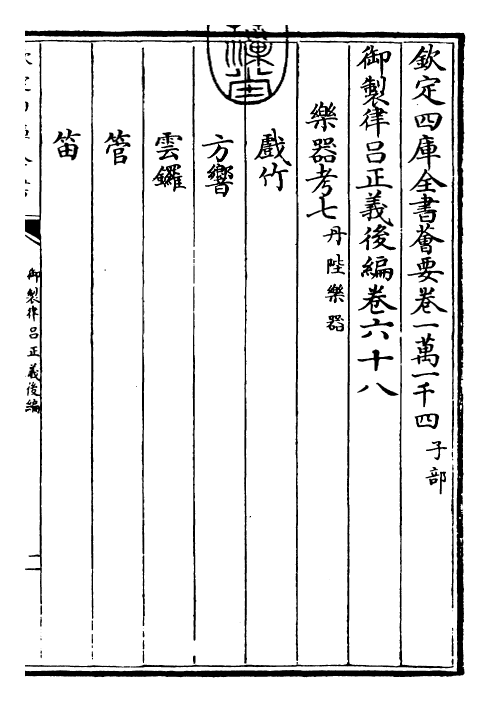 欽定四庫全書薈要卷一萬一千四 子部
御製律呂正義後編卷六十八
樂器考七 丹陛樂器
戲竹
方響
雲鑼
管
笛
欽定四庫全書
御製律呂正義後編